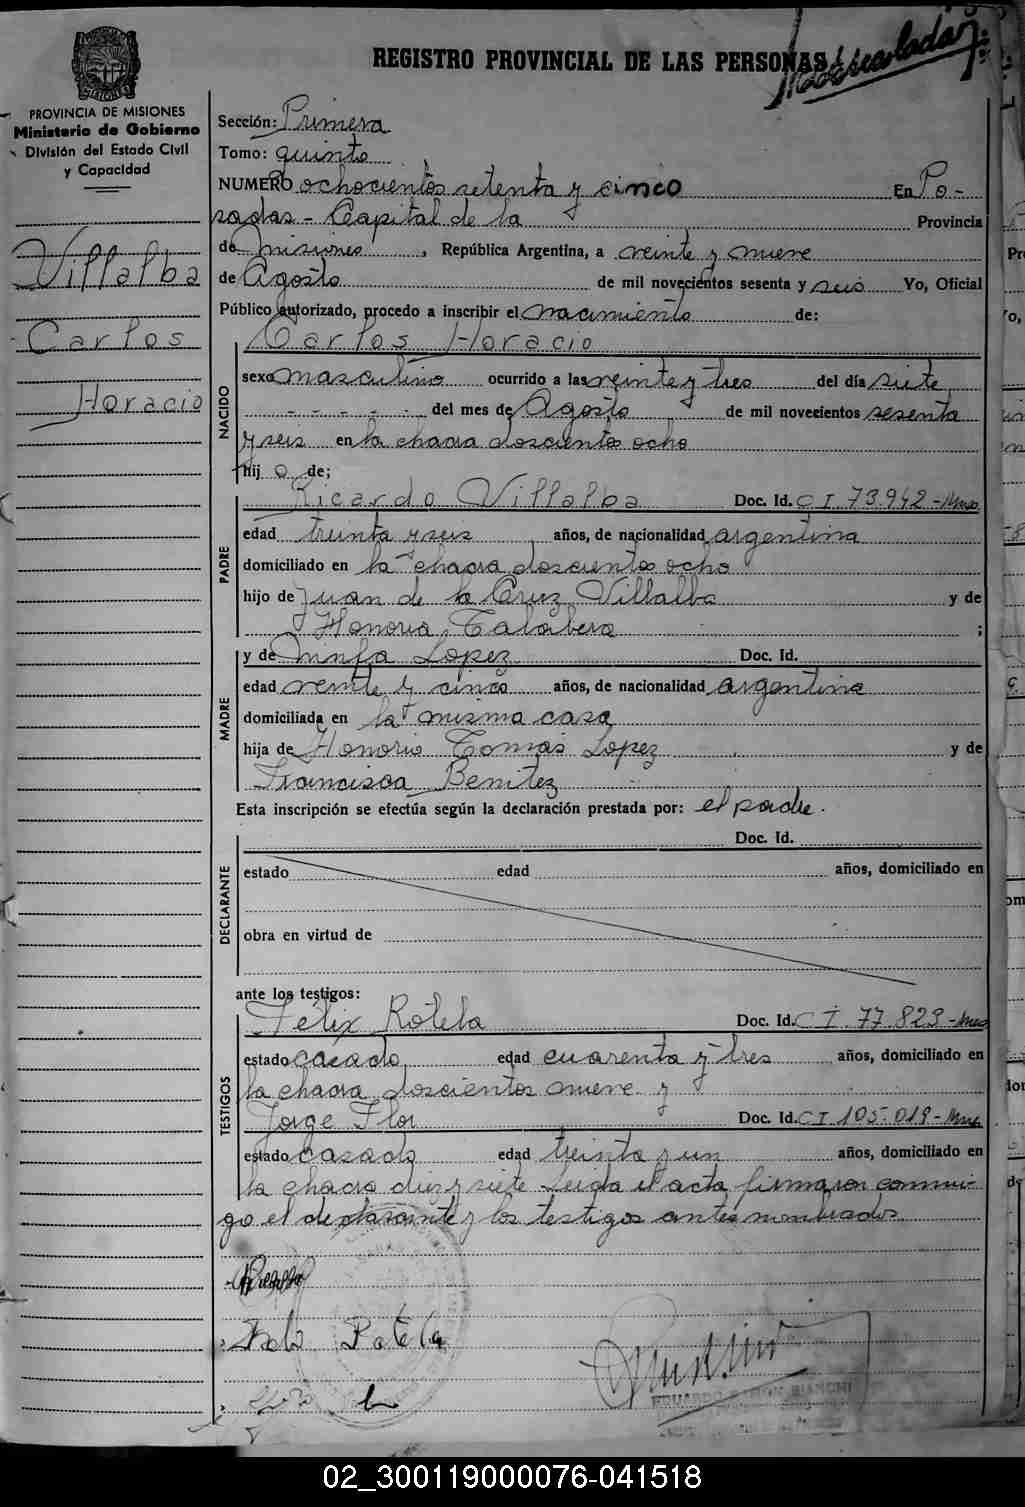 REGISTRO PROVINCIAL DE LAS PERSONAS
PROVINCIA DE MISIONES
Ministerio de Gobierno
División del Estado Civil
y Capacidad
Villalba
Carlos
Horacio
Sección: Primera
Tomo: quinto
NUMERO ochocientos setenta y cinco En Po-
sadas - Capital de la Provincia
de Misiones, República Argentina, a veinte y nueve
de Agosto de mil novecientos sesenta y seis Yo, Oficial
Público autorizado, procedo a inscribir el nacimiento de:
Carlos Horacio
NACIDO
sexo masculino ocurrido a las veinte y tres del día siete
- - - - - del mes de Agosto de mil novecientos sesenta
y seis en la chacra doscientos ocho
hij o de;
PADRE
Ricardo Villalba Doc. Id. C I. 73.942 - Mnes
edad treinta y seis años, de nacionalidad argentina
domiciliado en la chacra doscientos ocho
hijo de Juan de la Cruz Villalba y de
Honoria Talabera ;
MADRE
y de Ninfa Lopez Doc. Id.
edad veinte y cinco años, de nacionalidad argentina
domiciliada en la misma casa
hija de Honorio Tomas Lopez y de
Francisca Benitez
Esta inscripción se efectúa según la declaración prestada por: el padre.
DECLARANTE
Doc. Id.
estado edad años, domiciliado en
obra en virtud de
ante los testigos:
TESTIGOS
Félix Rotela Doc. Id. C I. 77.823 - Mnes
estado casado edad cuarenta y tres años, domiciliado en
la chacra doscientos nueve y
Jorge Flor Doc. Id. C I. 105.019 - Mnes
estado casado edad treinta y un años, domiciliado en
la chacra diez y siete Leida el acta firmaron conmi-
go el declarante y los testigos antes nombrados
Rotela
EDUARDO RAMON BIANCHI
02_300119000076-041518